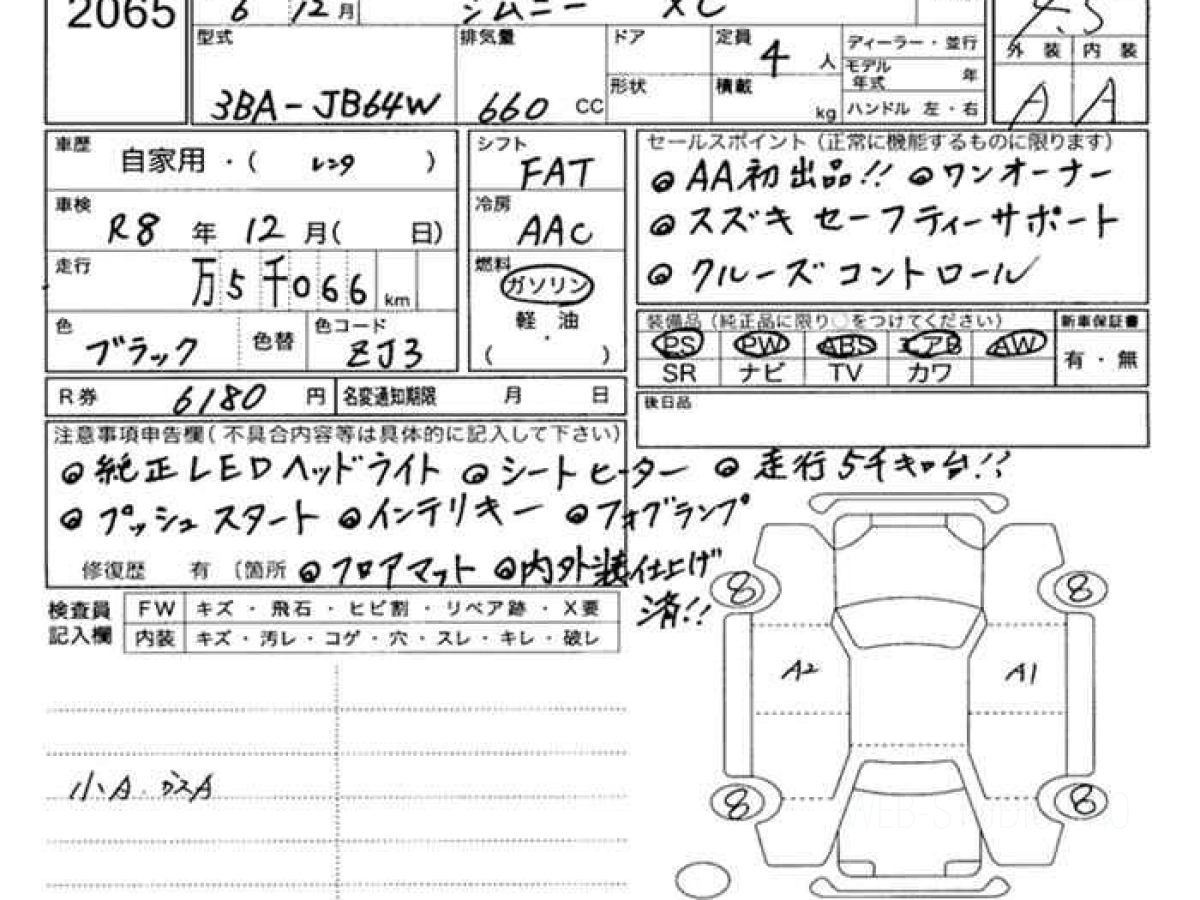 2065
6 12月 ジムニー XC
4.5
型式 排気量 ドア 定員 4 人 ディーラー・並行
外装 内装
モデル年式 年
形状 積載 kg
3BA-JB64W 660 CC ハンドル 左・右
A A
車歴 自家用・( レンタ )
シフト FAT
セールスポイント(正常に機能するものに限ります)
◎AA初出品!! ◎ワンオーナー
車検 R8年 12月( 日)
冷房 AAC
◎スズキ セーフティーサポート
走行 万5千066 km
燃料 ガソリン
◎クルーズコントロール
軽油
( )
色 ブラック 色替 色コード ZJ3
装備品(純正品に限り○をつけてください) 新車保証書
PS PW ABS エアB AW
SR ナビ TV カワ
有・無
R券 6180 円 名変通知期限 月 日
後日品
注意事項申告欄(不具合内容等は具体的に記入して下さい)
◎純正LEDヘッドライト ◎シートヒーター ◎走行5千キロ台!!
◎プッシュスタート ◎インテリキー ◎フォグランプ
修復歴 有 〔箇所 ◎フロアマット ◎内外装仕上げ
済!!
検査員記入欄
FW キズ・飛石・ヒビ割・リペア跡・X要
内装 キズ・汚レ・コゲ・穴・スレ・キレ・破レ
8 8
A2 A1
小A
8 8